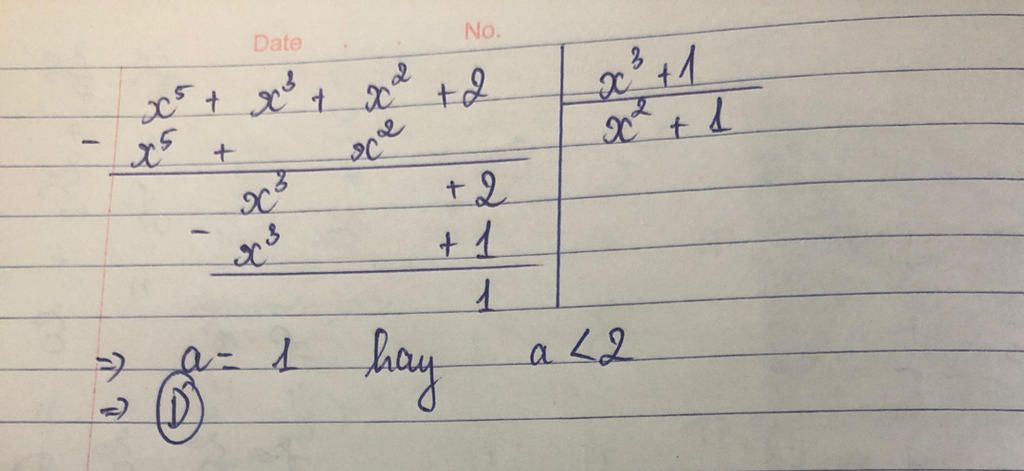 Date . . No.
x⁵ + x³ + x² + 2 | x³ + 1
- x⁵ + x² | x² + 1
x³ + 2
- x³ + 1
1
=> a = 1 hay a < 2
=> D